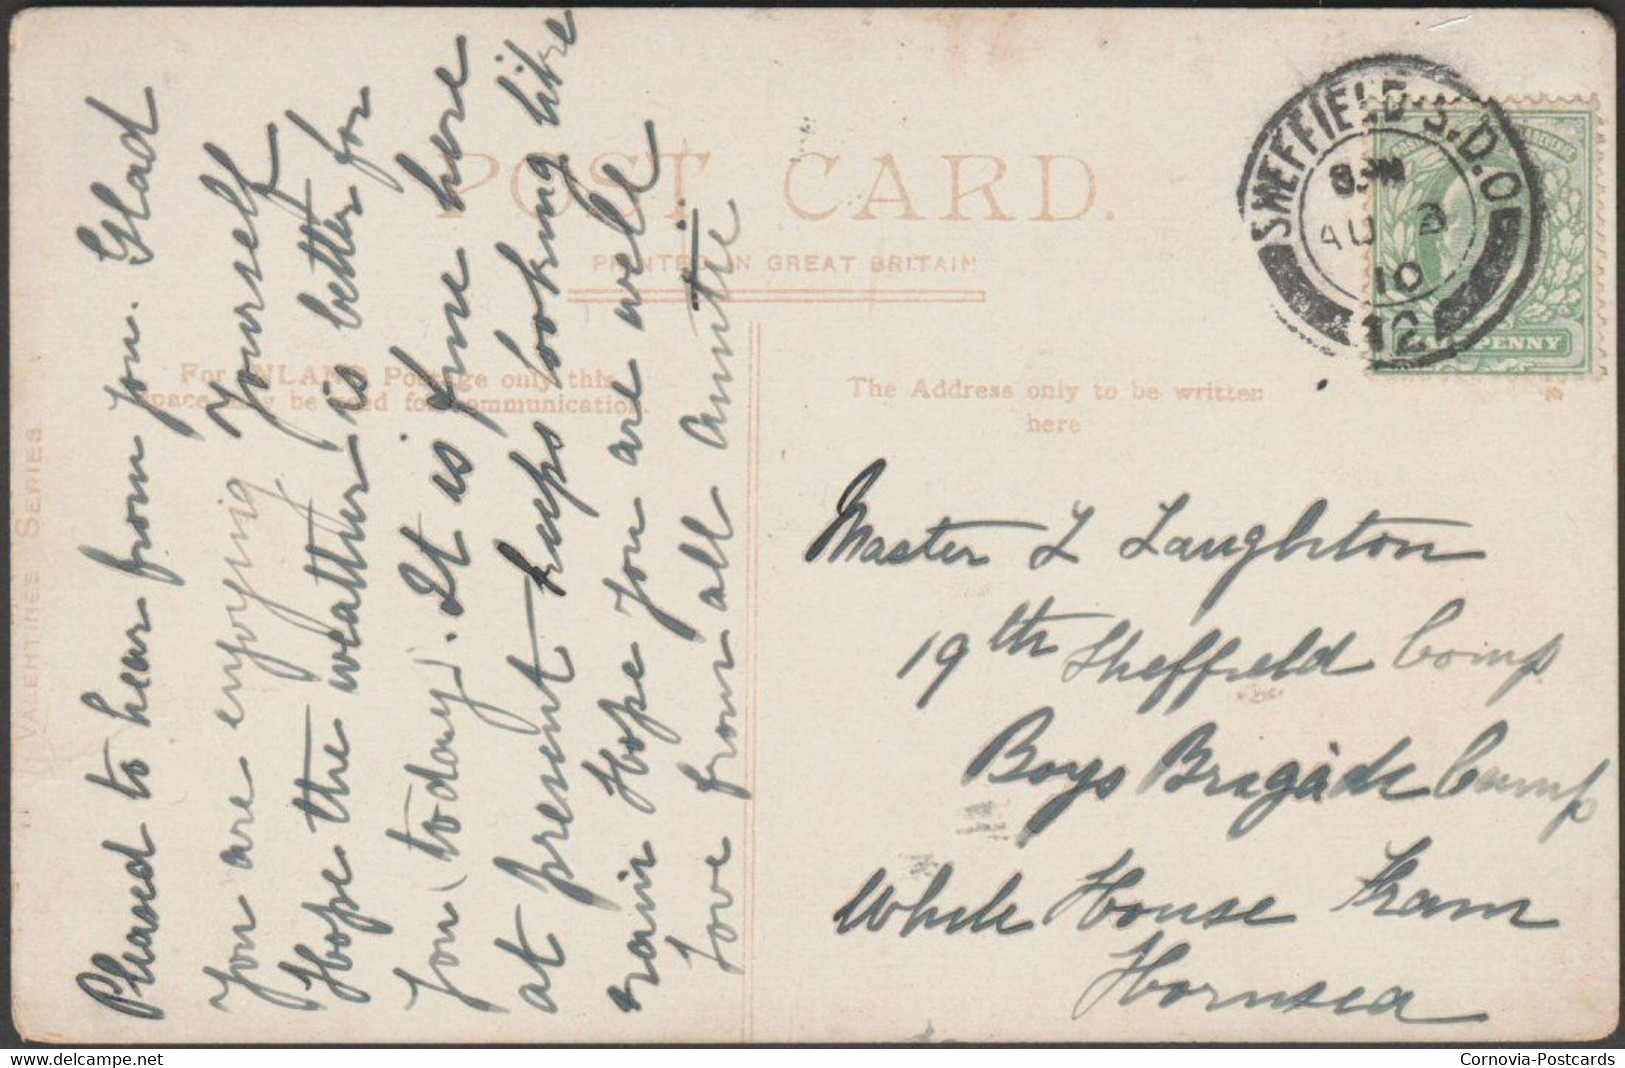 Pleased to hear from you. Glad
you are enjoying yourself
Hope the weather is better for
you today. It is fine here
at present keeps looking like
rain Hope you are well
Love from all Auntie
POST CARD.
PRINTED IN GREAT BRITAIN
For INLAND Postage only this
space may be used for communication.
The Address only to be written
here
VALENTINES SERIES
SHEFFIELD S.D.O
AU
10
12
HALFPENNY
Master L Laughton
19th Sheffield Comp
Boys Brigade Camp
White House Fram
Hornsea
Cornovia-Postcards